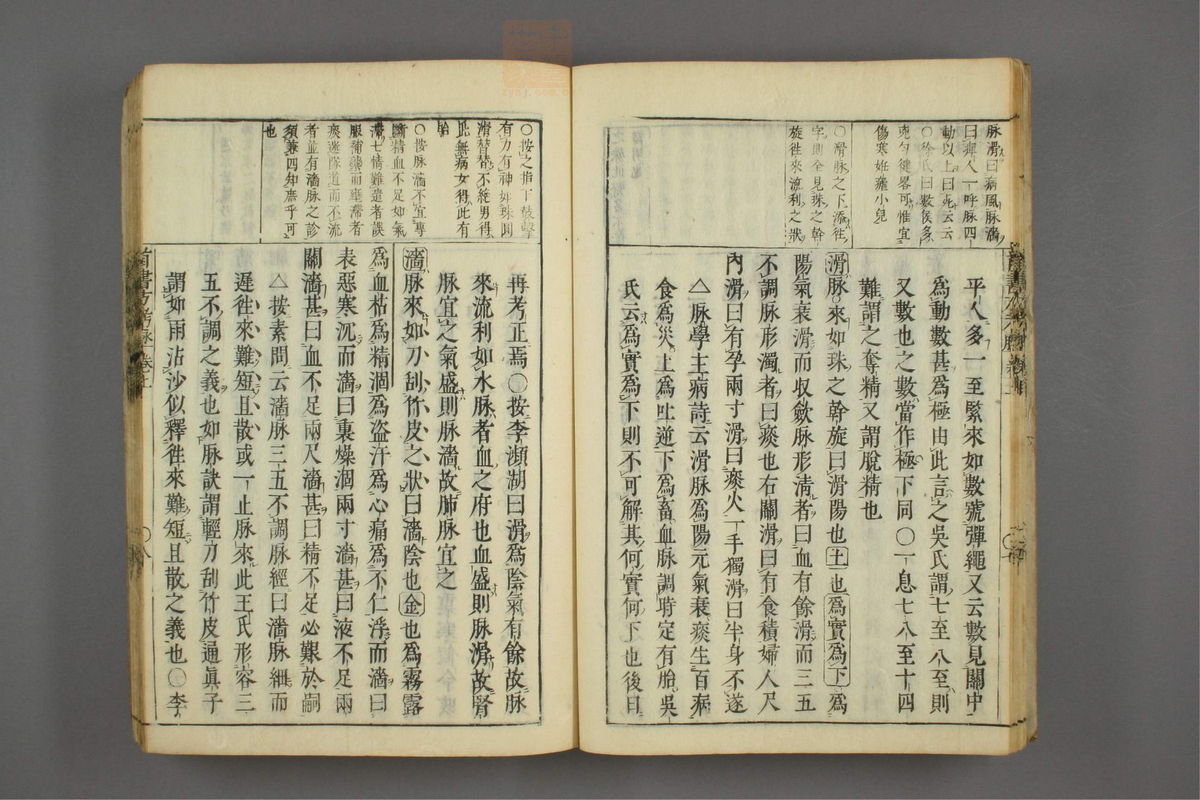 脉滑曰病風脉濇
曰痺人一呼脉四
動以上曰死云云
○徐氏曰數候多
兇勻徤畧可惟宜
傷寒妊瘧小兒
○滑脉之下添徃
字則全見珠之幹
旋徃来流利之狀
平人多一至緊來如數號彈繩又云數見關中
爲動數甚爲極由此言之吳氏謂七至八至則
又數也之數當作極下同○一息七八至十四
難謂之奪精又謂脫精也
滑脉來如珠之幹旋曰滑陽也土也爲實爲下爲
陽氣衰滑而收歛脉形淸者曰血有餘滑而三五
不調脉形濁者曰痰也右關滑曰有食積婦人尺
內滑曰有孕兩寸滑曰痰火一手獨滑曰半身不遂
△脉學主病詩云滑脉爲陽元氣衰痰生百病
食爲災上爲吐逆下爲畜血脉調時定有胎吳
氏云爲實爲下則不可解其何實何下也後日
○按之指下鼓擊
有力有神如珠則
滑替替不絶男得
此無病女得此有
胎
○按脉濇不宜專
斷精血不足如氣
滯七情難遣者痰
服蒲欝而壅滯者
痰迷隊道而不流
者並有濇脉之診
須兼四知庶乎可
也
再考正焉○按李瀕湖曰滑爲陰氣有餘故脉
來流利如水脉者血之府也血盛則脉滑故腎
脉宜之氣盛則脉濇故肺脉宜之
濇脉來如刀刮竹皮之狀曰濇陰也金也爲霧露
爲血枯爲精涸爲盜汗爲心痛爲不仁浮而濇曰
表惡寒沉而濇曰裏燥涸兩寸濇甚曰液不足兩
關濇甚曰血不足兩尺濇甚曰精不足必艱於嗣
△按素問云濇脉三五不調脉經曰濇脉細而
遲徃來難短且散或一止脉來此王氏形容三
五不調之義也如脉訣謂輕刀刮竹皮通眞子
謂如雨沾沙似釋徃來難短且散之義也○李